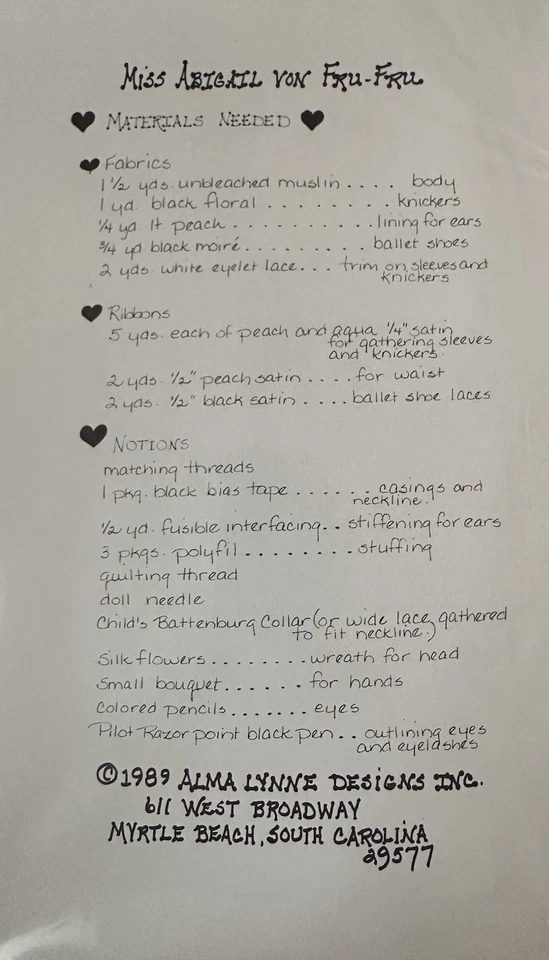 Miss Abigail von Fru-Fru
Materials Needed
Fabrics
1 1/2 yds. unbleached muslin . . . . body
1 yd. black floral . . . . . . . . knickers
1/4 yd. lt. peach . . . . . . . . . . lining for ears
3/4 yd black moiré . . . . . . . . . ballet shoes
2 yds. white eyelet lace . . . trim on sleeves and
knickers
Ribbons
5 yds. each of peach and aqua 1/4" satin
for gathering sleeves
and knickers.
2 yds. 1/2" peach satin . . . . for waist
2 yds. 1/2" black satin . . . . ballet shoe laces
Notions
matching threads
1 pkg. black bias tape . . . . . . casings and
neckline.
1/2 yd. fusible interfacing . . stiffening for ears
3 pkgs. polyfil . . . . . . . . stuffing
quilting thread
doll needle
Child's Battenburg Collar (or wide lace gathered
to fit neckline.)
Silk flowers . . . . . . . . wreath for head
Small bouquet . . . . . . for hands
Colored pencils . . . . . . . eyes
Pilot Razor point black pen . . outlining eyes
and eyelashes
©1989 Alma Lynne Designs Inc.
611 West Broadway
Myrtle Beach, South Carolina
29577